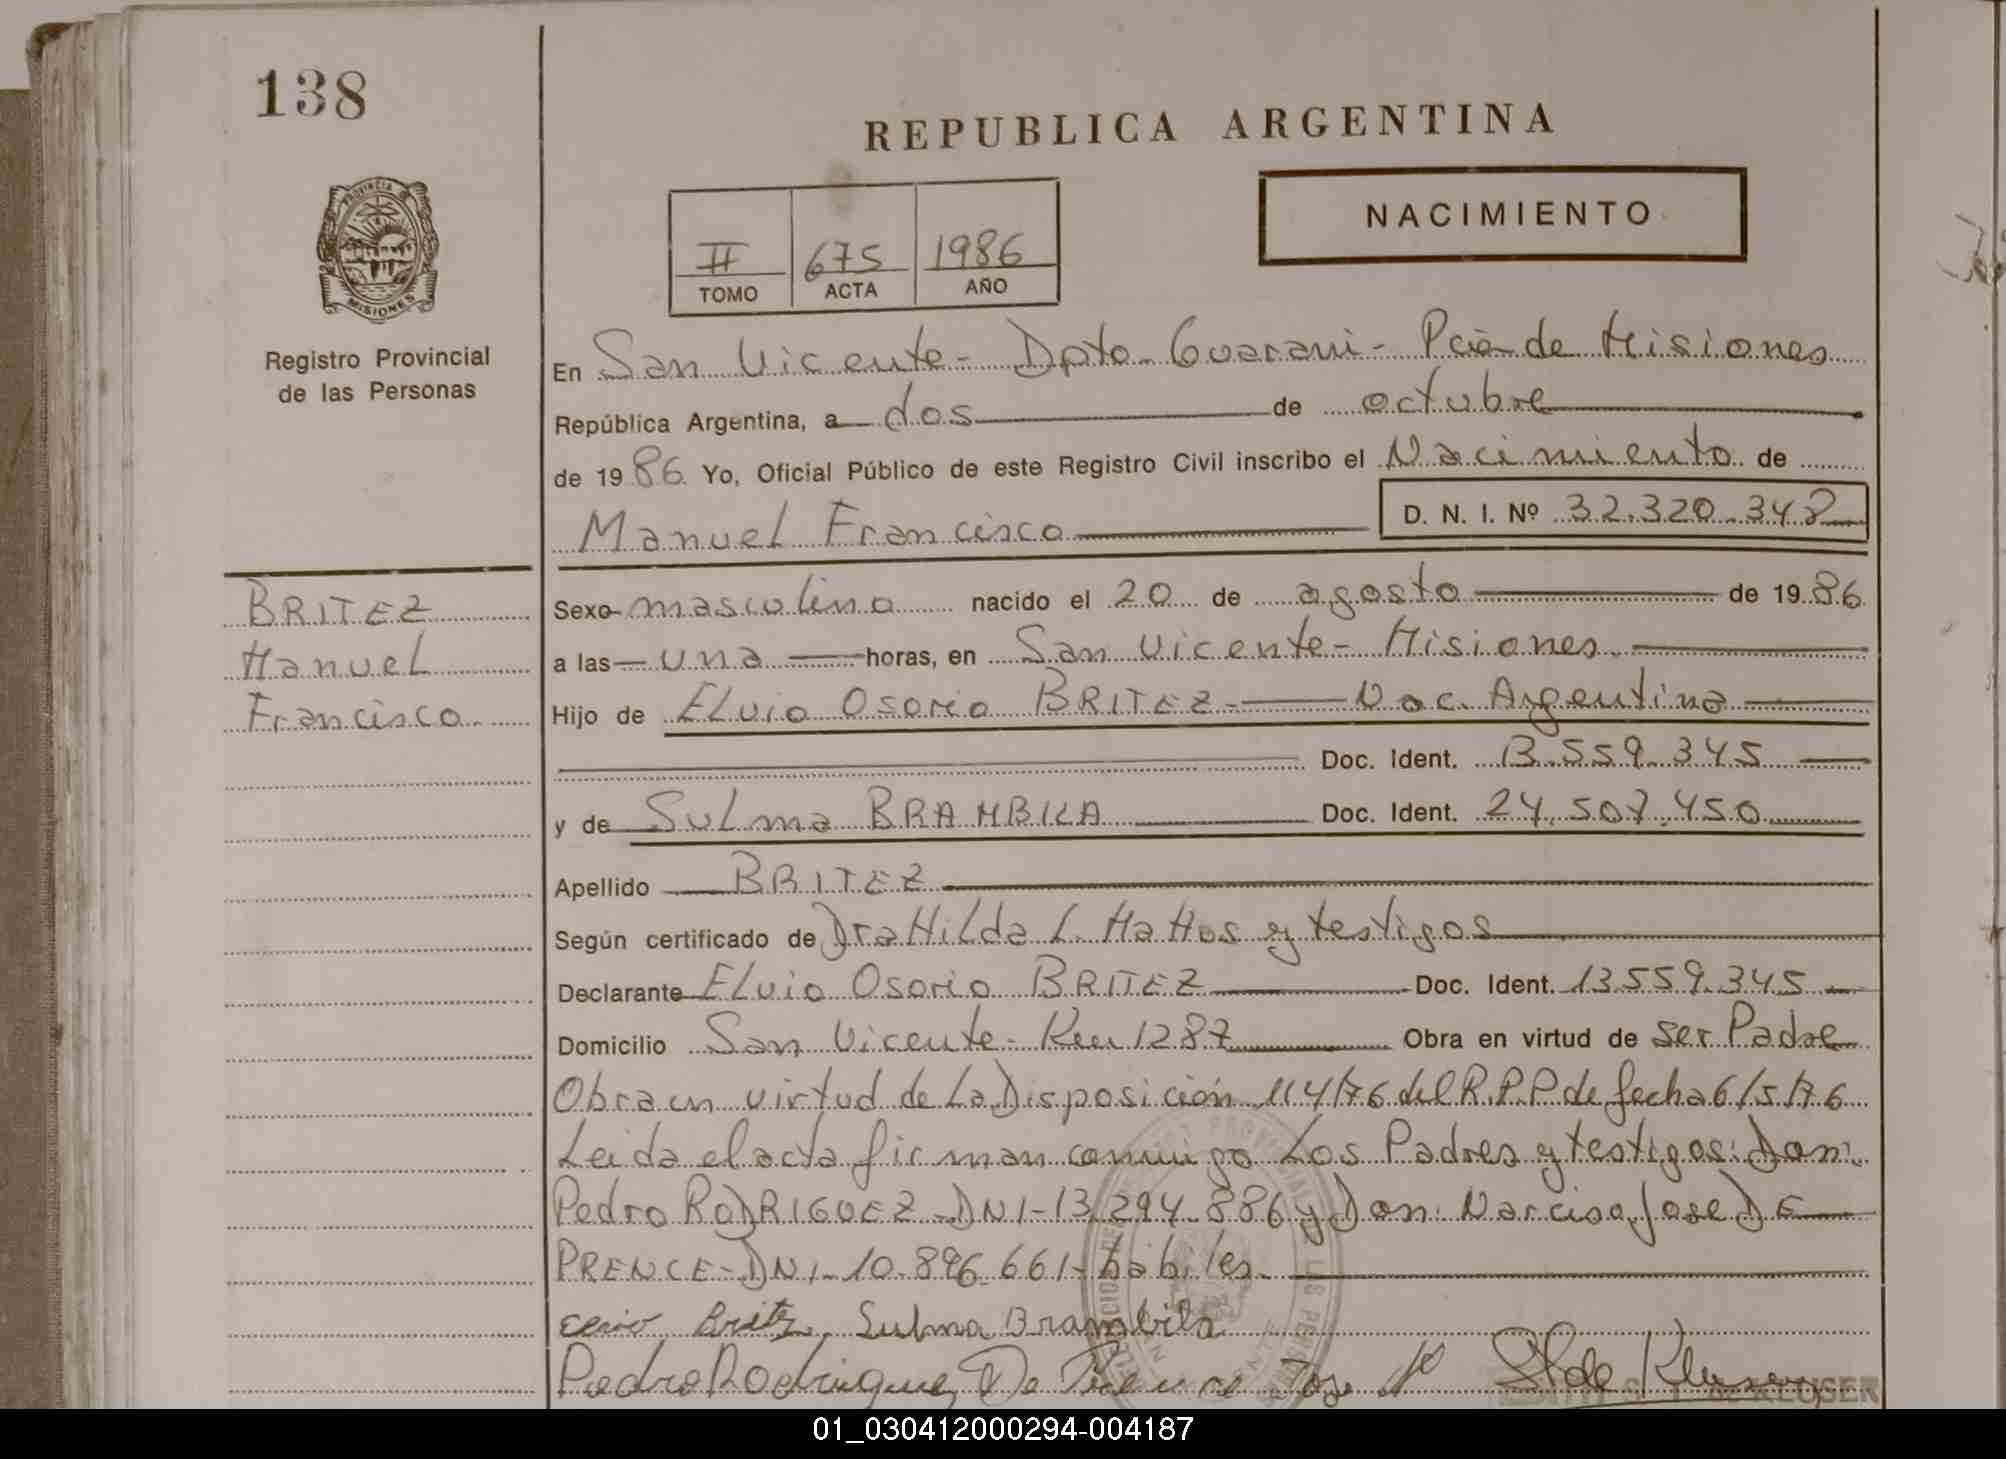 138
REPUBLICA ARGENTINA
PROVINCIA
MISIONES
Registro Provincial
de las Personas
II 675 1986
TOMO ACTA AÑO
NACIMIENTO
En San Vicente - Dpto Guarani - Pcia de Misiones
República Argentina, a dos de octubre
de 1986 Yo, Oficial Público de este Registro Civil inscribo el Nacimiento de
Manuel Francisco D. N. I. Nº 32.320.348
BRITEZ
Manuel
Francisco
Sexo masculino nacido el 20 de agosto de 1986
a las una horas, en San Vicente - Misiones
Hijo de Elvio Osorio BRITEZ - Nac. Argentina
Doc. Ident. 13.559.345
y de Sulma BRAMBILA Doc. Ident. 24.507.450
Apellido BRITEZ
Según certificado de Dra Hilda L. Mattos y testigos
Declarante Elvio Osorio BRITEZ Doc. Ident. 13.559.345
Domicilio San Vicente - Km 1287 Obra en virtud de ser Padre
Obra en virtud de la Disposición 114/76 del R.P.P de fecha 6/5/76
Leida el acta firman conmigo Los Padres y testigos: Don
Pedro RODRIGUEZ - DNI - 13.294.886 y Don Narciso Jose DE
PRENCE - DNI - 10.896.661 - hábiles
Britez Sulma Brambila
Pedro Rodriguez De Prence Jose N
01_030412000294-004187